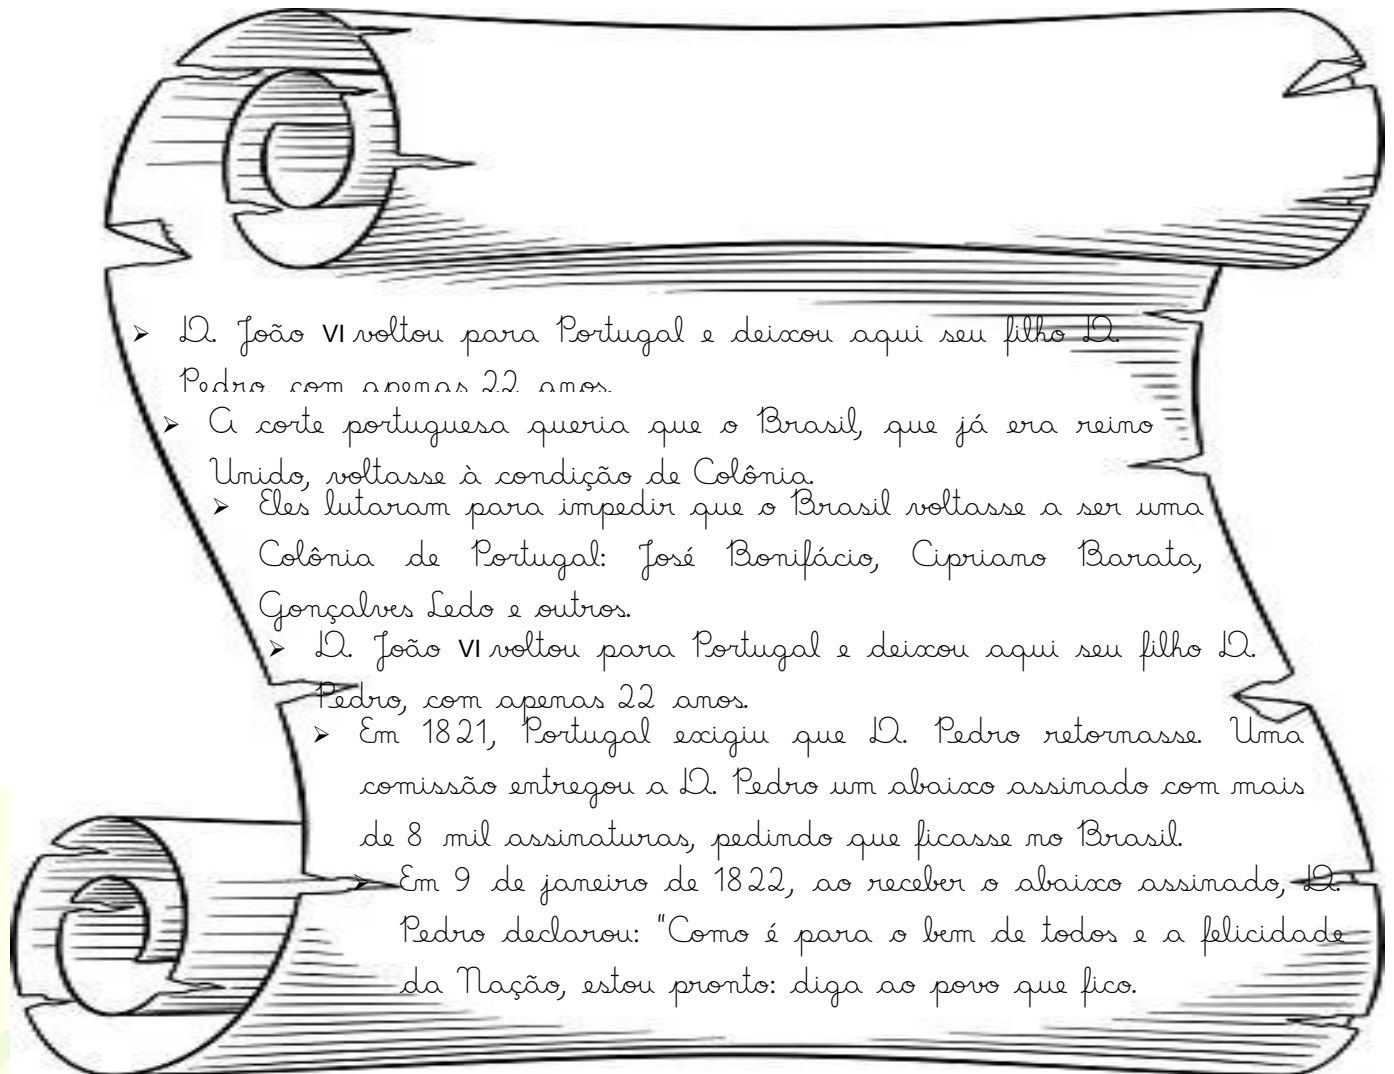 ➢ D. João VI voltou para Portugal e deixou aqui seu filho D.
Pedro, com apenas 22 anos.
➢ A corte portuguesa queria que o Brasil, que já era reino
Unido, voltasse à condição de Colônia.
➢ Eles lutaram para impedir que o Brasil voltasse a ser uma
Colônia de Portugal: José Bonifácio, Cipriano Barata,
Gonçalves Ledo e outros.
➢ D. João VI voltou para Portugal e deixou aqui seu filho D.
Pedro, com apenas 22 anos.
➢ Em 1821, Portugal exigiu que D. Pedro retornasse. Uma
comissão entregou a D. Pedro um abaixo assinado com mais
de 8 mil assinaturas, pedindo que ficasse no Brasil.
➢ Em 9 de janeiro de 1822, ao receber o abaixo assinado, D.
Pedro declarou: "Como é para o bem de todos e a felicidade
da Nação, estou pronto: diga ao povo que fico.